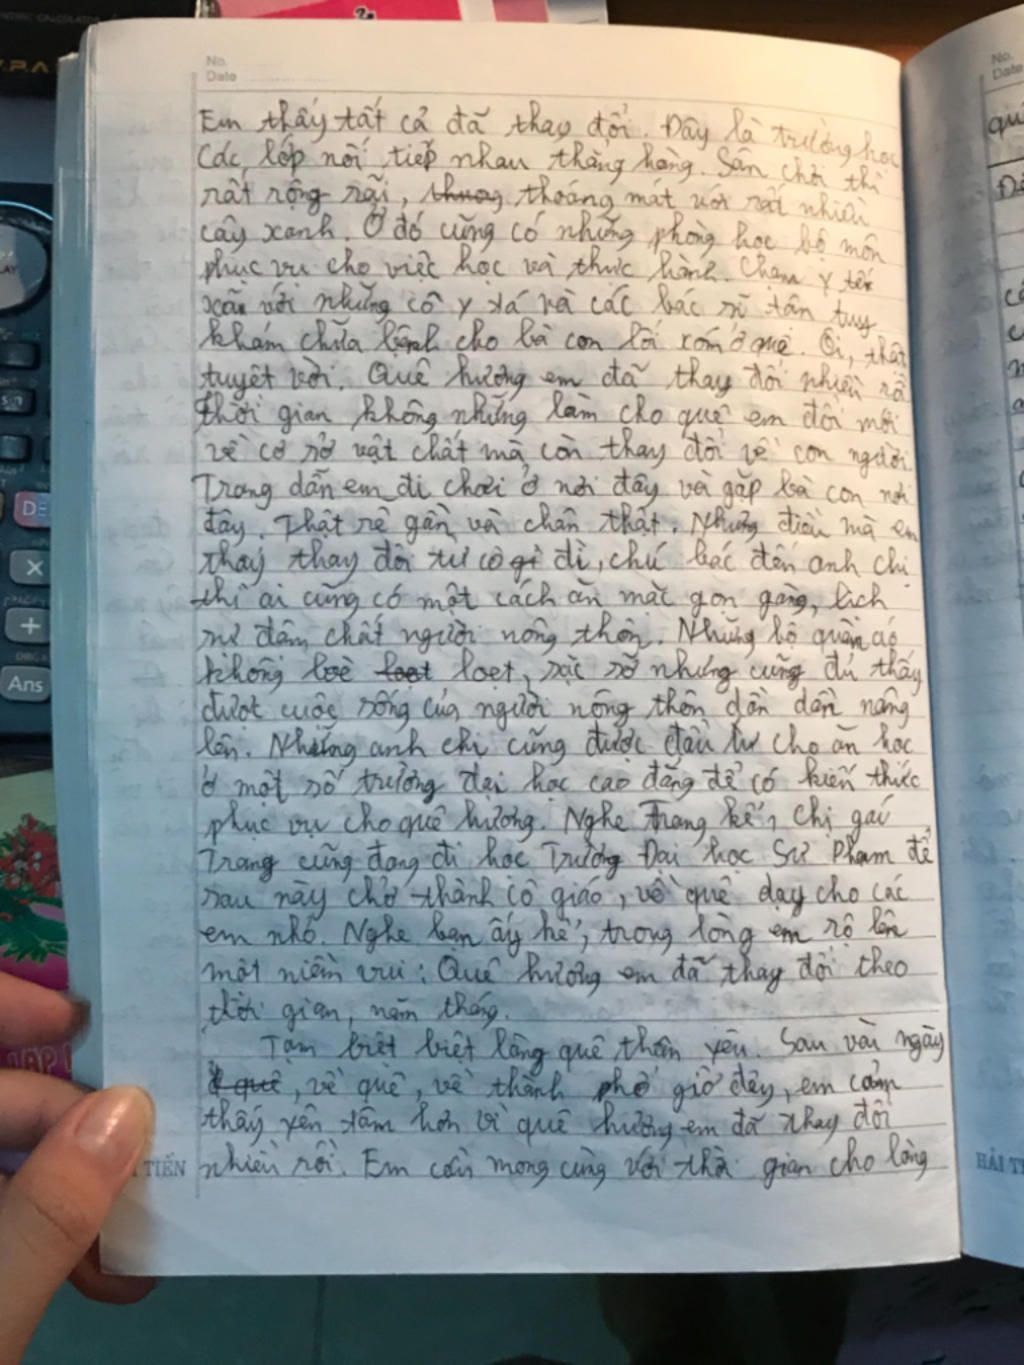 No.
Date
Em thấy tất cả đã thay đổi. Đây là trường học
Các lớp nối tiếp nhau thẳng hàng. Sân chơi thì
rất rộng rãi, thoáng mát với rất nhiều
cây xanh. Ở đó cũng có những phòng học bộ môn
phục vụ cho việc học và thực hành. Chạm y tế
xã với những cô y tá và các bác sĩ tận tuỵ
khám chữa bệnh cho bà con lối xóm ở quê. Ôi, thật
tuyệt vời. Quê hương em đã thay đổi nhiều rồi
Thời gian không những làm cho quê em đổi mới
về cơ sở vật chất mà còn thay đổi về con người.
Trang dẫn em đi chơi ở nơi đây và gặp bà con nơi
đây. Thật gần và chân thật. Những điều mà em
thấy thay đổi từ cô dì, chú bác đến anh chị
thì ai cũng có một cách ăn mặc gọn gàng, lịch
sự đậm chất người nông thôn. Những bộ quần áo
không loè loẹt, sặc sỡ nhưng cũng đủ thấy
được cuộc sống của người nông thôn dần dần nâng
lên. Những anh chị cũng được đầu tư cho ăn học
ở một số trường đại học cao đẳng để có kiến thức
phục vụ cho quê hương. Nghe Trang kể, chị gái
Trang cũng đang đi học Trường Đại học Sư Phạm để
sau này chở thành cô giáo, về quê dạy cho các
em nhỏ. Nghe bạn ấy kể, trong lòng em rộ lên
một niềm vui: Quê hương em đã thay đổi theo
thời gian, năm tháng.
Tạm biệt biệt làng quê thân yêu. Sau vài ngày
, về quê, về thành phố giờ đây, em cảm
thấy yên tâm hơn vì quê hương em đã thay đổi
nhiều rồi. Em mong cùng với thời gian cho làng
TIẾN
HẢI T
No.
Date
Ans